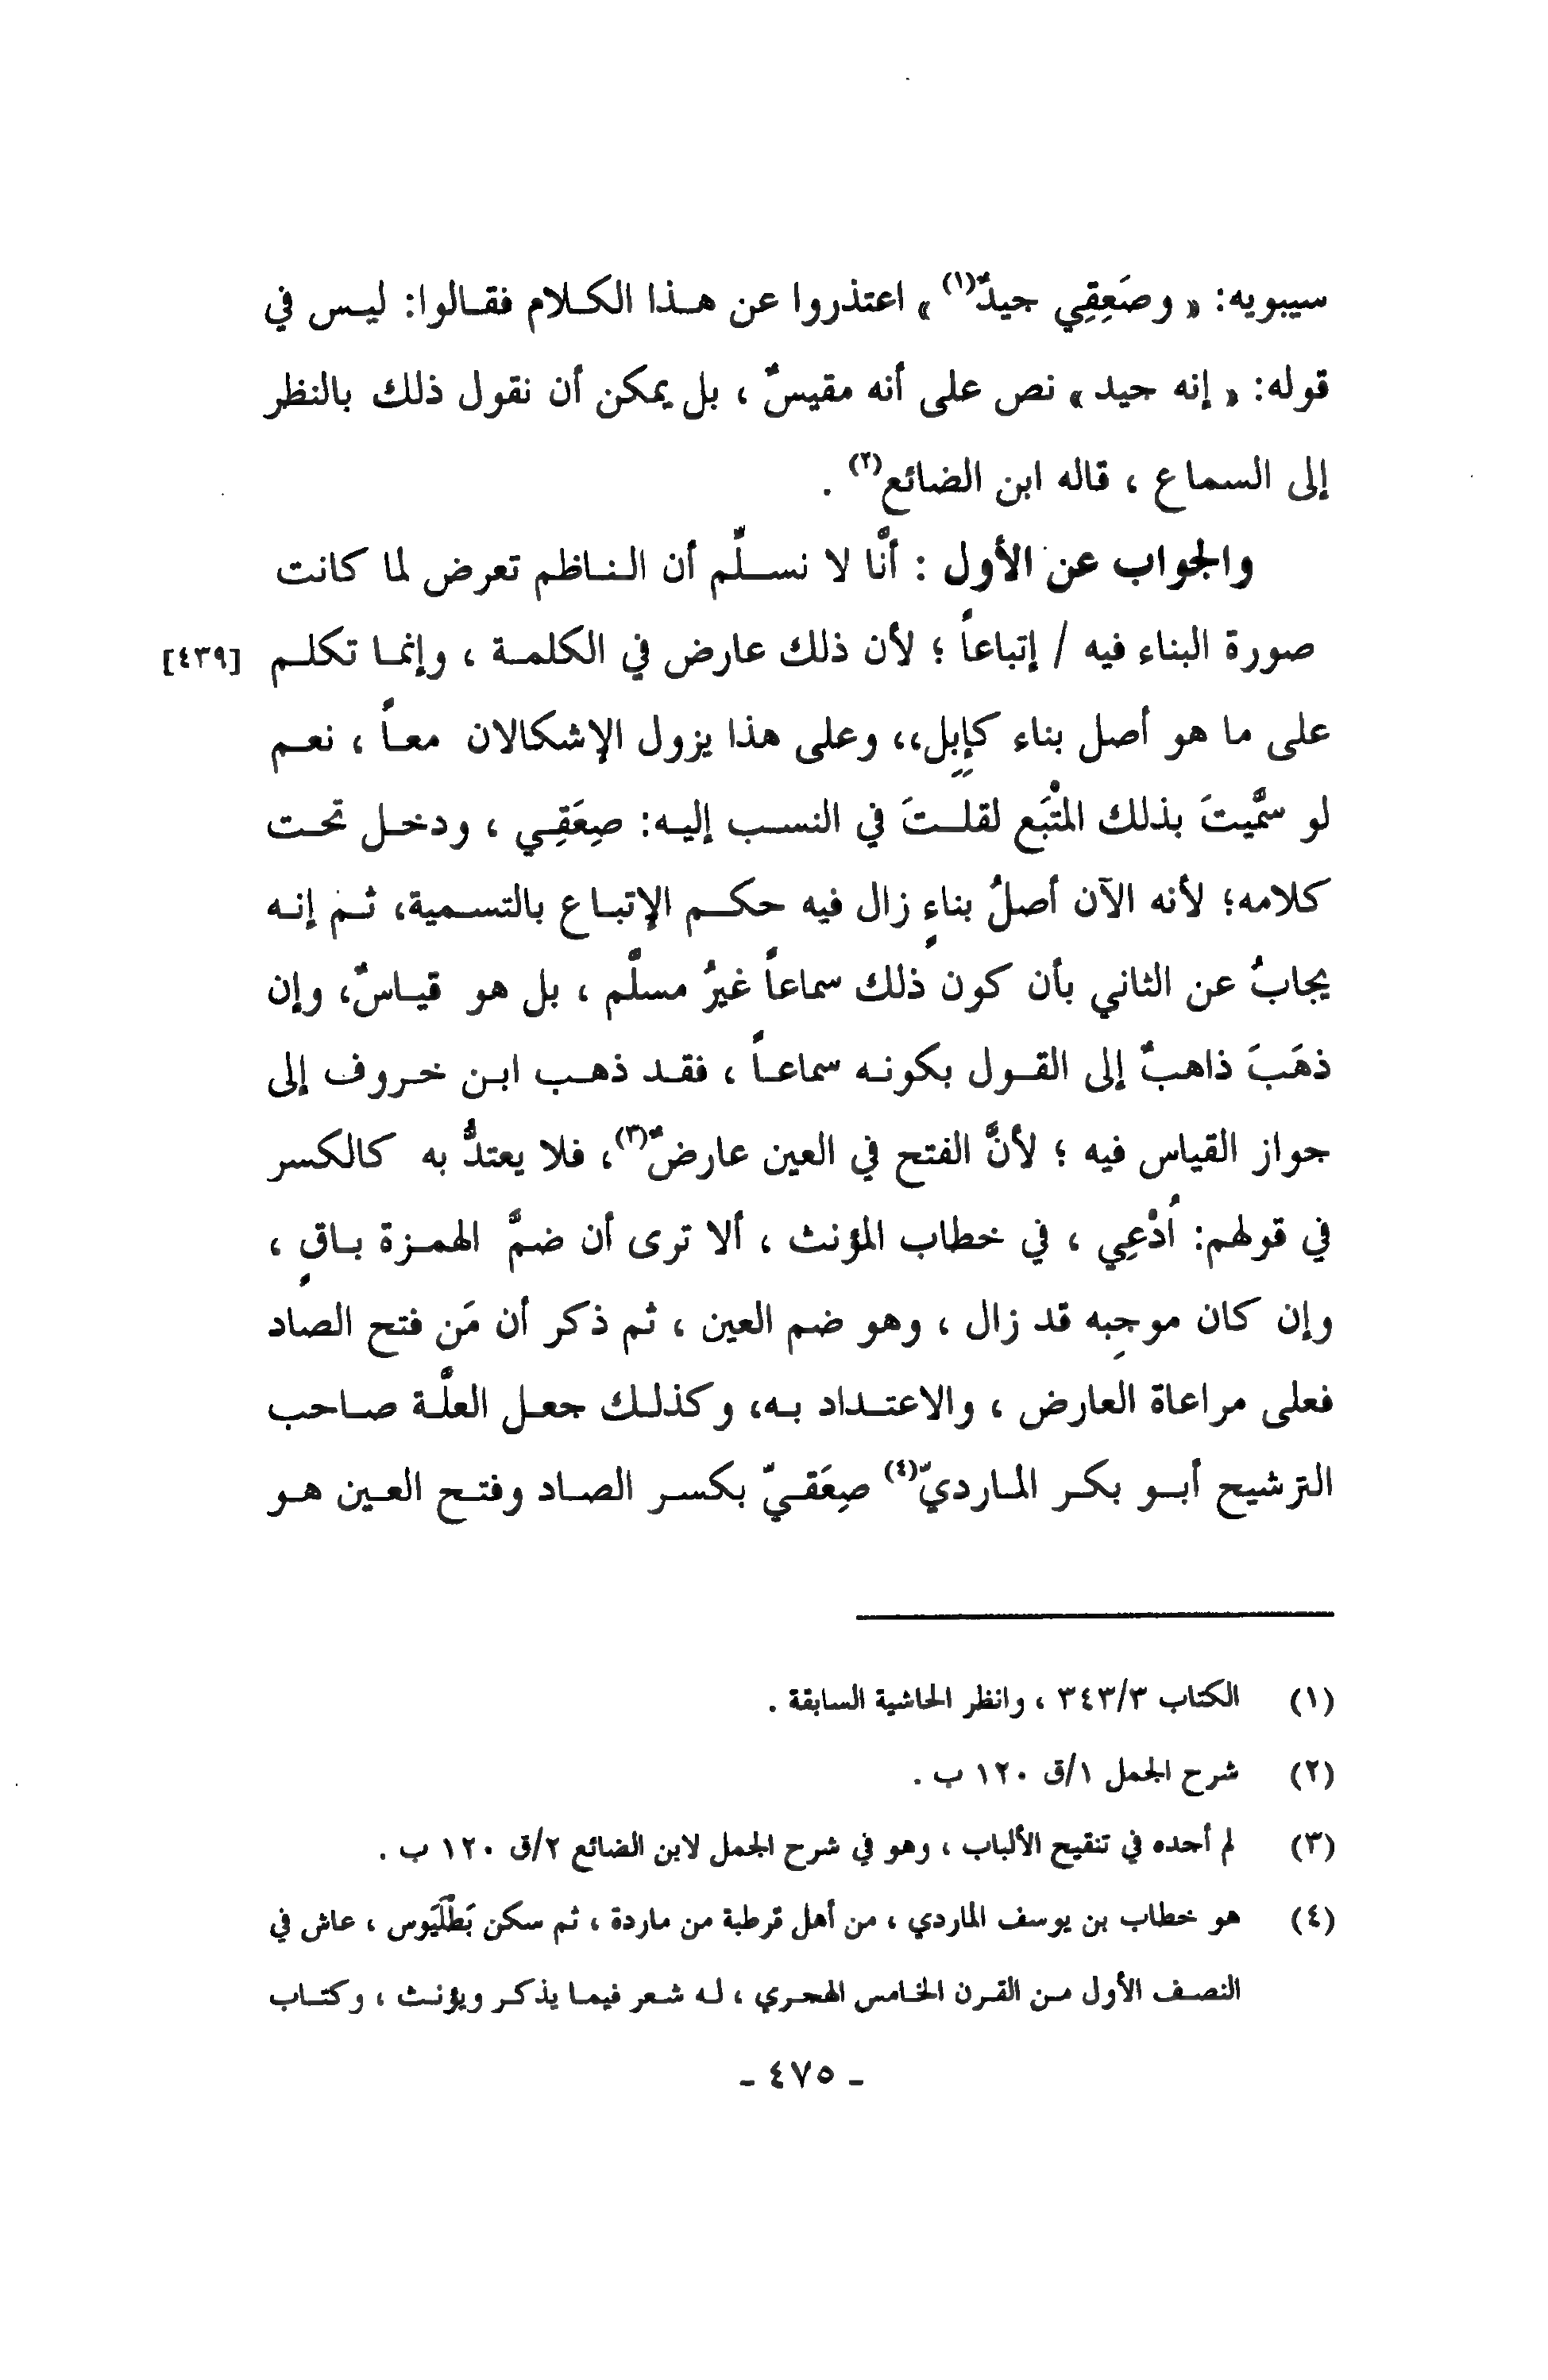 سيبويه: « وصَعِقِي جيدٌ(١) » اعتذروا عن هـذا الكـلام فقـالوا: ليـس في
قوله: « إنه جيد » نص على أنه مقيسٌ ، بل يمكن أن نقول ذلك بالنظر
إلى السماع ، قاله ابن الضائع(٢) .
والجواب عن الأول : أنَّا لا نسـلِّم أن النـاظم تعرض لما كانت
صورة البناء فيه / إتباعاً ؛ لأن ذلك عارض في الكلمـة ، وإنمـا تكلـم [٤٣٩]
على ما هو أصل بناء كإِبِل،، وعلى هذا يزول الإشكالان معـاً ، نعـم
لو سمَّيتَ بذلك المتْبَع لقلـتَ في النسـب إليـه: صِعَقِـي ، ودخـل تحـت
كلامه؛ لأنه الآن أصلُ بناءٍ زال فيه حكـم الإتبـاع بالتسـمية، ثـم إنـه
يجابُ عن الثاني بأن كون ذلك سماعاً غيرُ مسلَّم ، بل هو قيـاسٌ، وإن
ذهَبَ ذاهبٌ إلى القـول بكونـه سماعـاً ، فقـد ذهـب ابـن خـروف إلى
جواز القياس فيه ؛ لأنَّ الفتح في العين عارضٌ(٣)، فلا يعتدُّ به كالكسر
في قولهم: اُدْعِي ، في خطاب المؤنث ، ألا ترى أن ضمَّ الهمـزة بـاقٍ ،
وإن كان موجِبه قد زال ، وهو ضم العين ، ثم ذكر أن مَن فتح الصاد
فعلى مراعاة العارض ، والاعتـداد بـه، وكذلـك جعـل العلّـة صـاحب
الترشيح أبـو بكـر المـارديّ(٤) صِعَقـيّ بكسـر الصـاد وفتـح العـين هـو
(١) الكتاب ٣٤٣/٣ ، وانظر الحاشية السابقة .
(٢) شرح الجمل ١/ق ١٢٠ ب .
(٣) لم أجده في تنقيح الألباب ، وهو في شرح الجمل لابن الضائع ٢/ق ١٢٠ ب .
(٤) هو خطاب بن يوسف الماردي ، من أهل قرطبة من ماردة ، ثم سكن بَطْلَيَوس ، عاش في
النصـف الأول مـن القـرن الخـامس الهجـري ، لـه شـعر فيمـا يذكـر ويؤنـث ، وكتـاب
ـ ٤٧٥ ـ